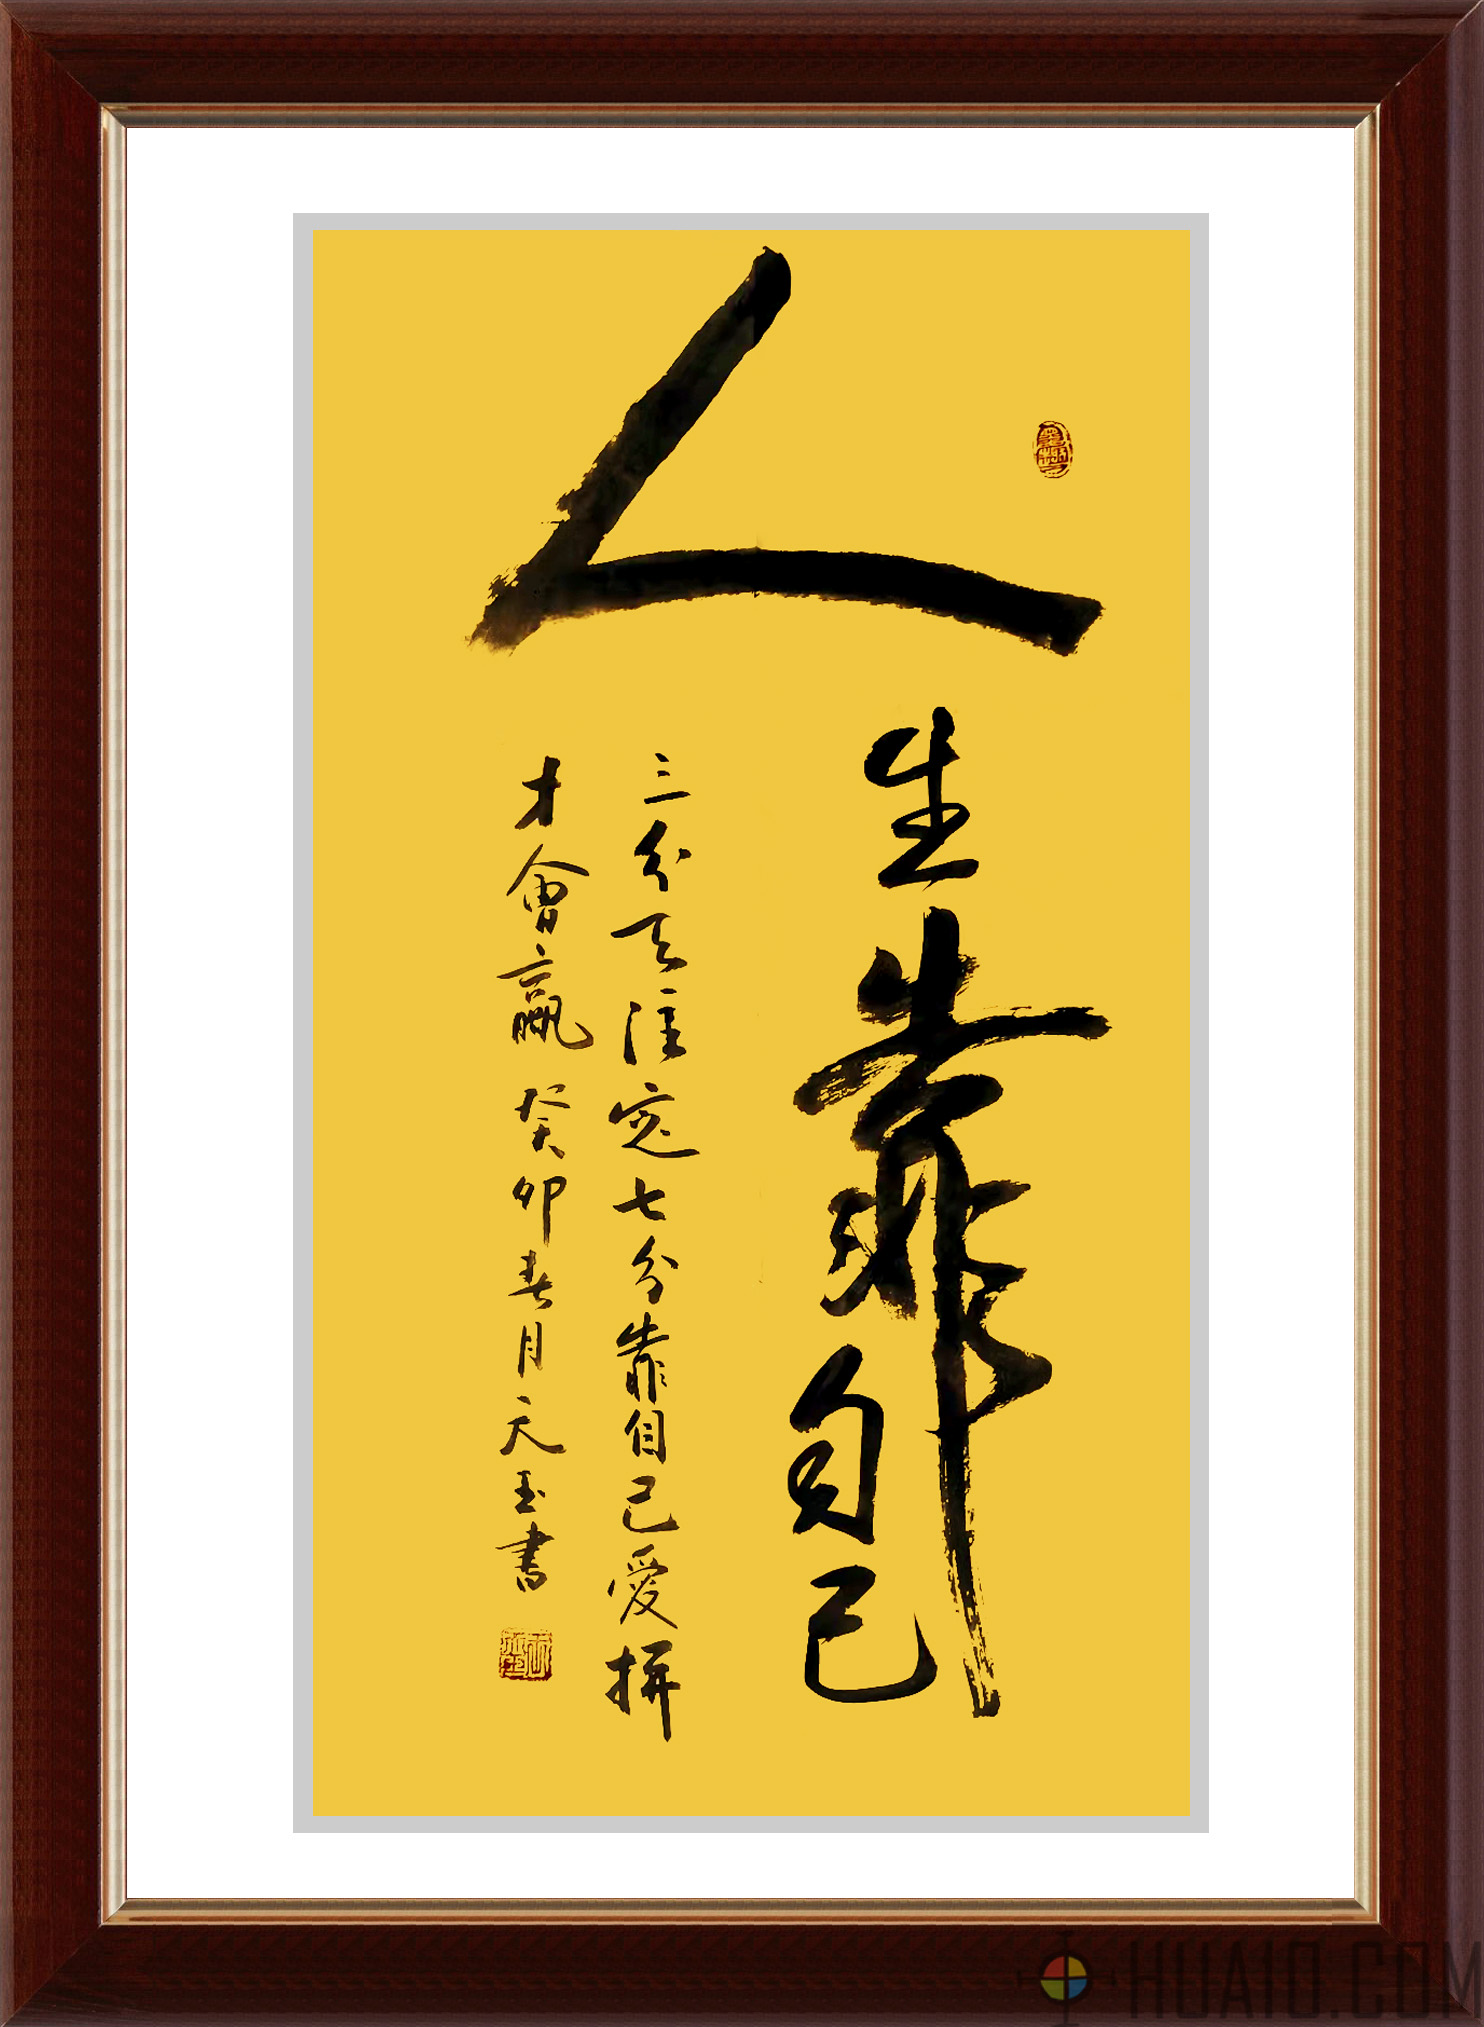 人生靠自己
三分天注定七分靠自己愛拼
才會贏 癸卯春月天玉書
HUA10.COM